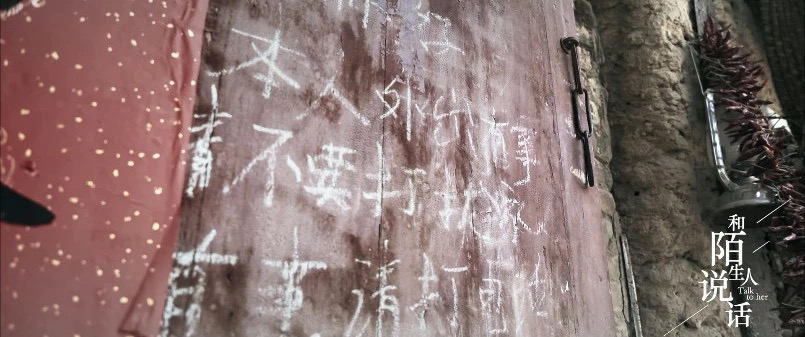 好
本人外出有事
请不要打扰
有事请打电话
和陌生人说话
Talk to her